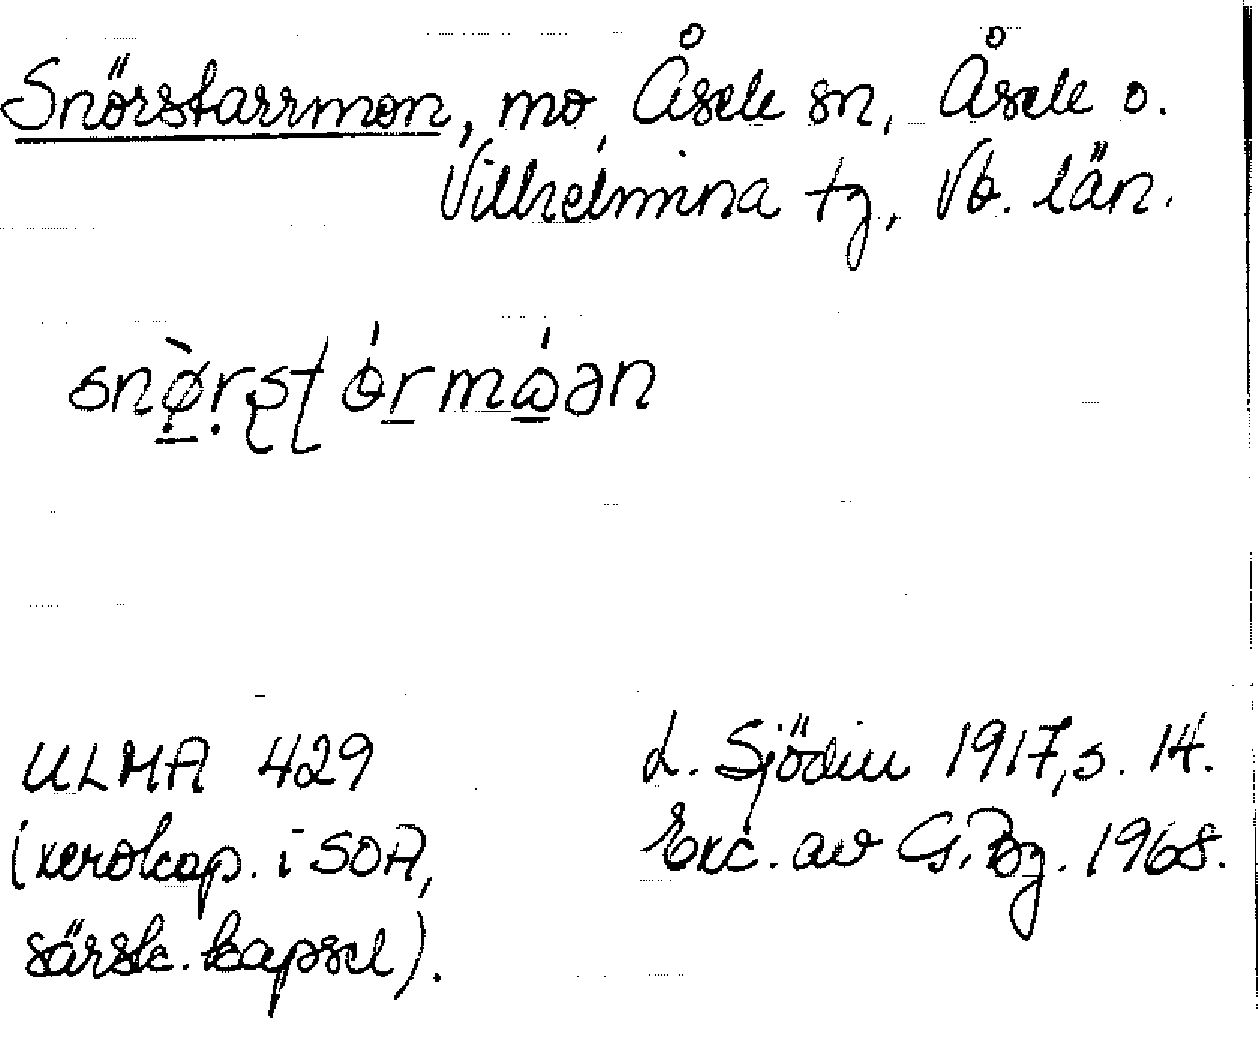 Snörstarrmon, mo, Åsele sn, Åsele o.
Vilhelmina tg, Vb. län.
ULMA 429
(xerokop. i SOA,
särsk. kapsel).
L. Sjödin 1917, s. 14.
Exc. av G. Bg. 1968.